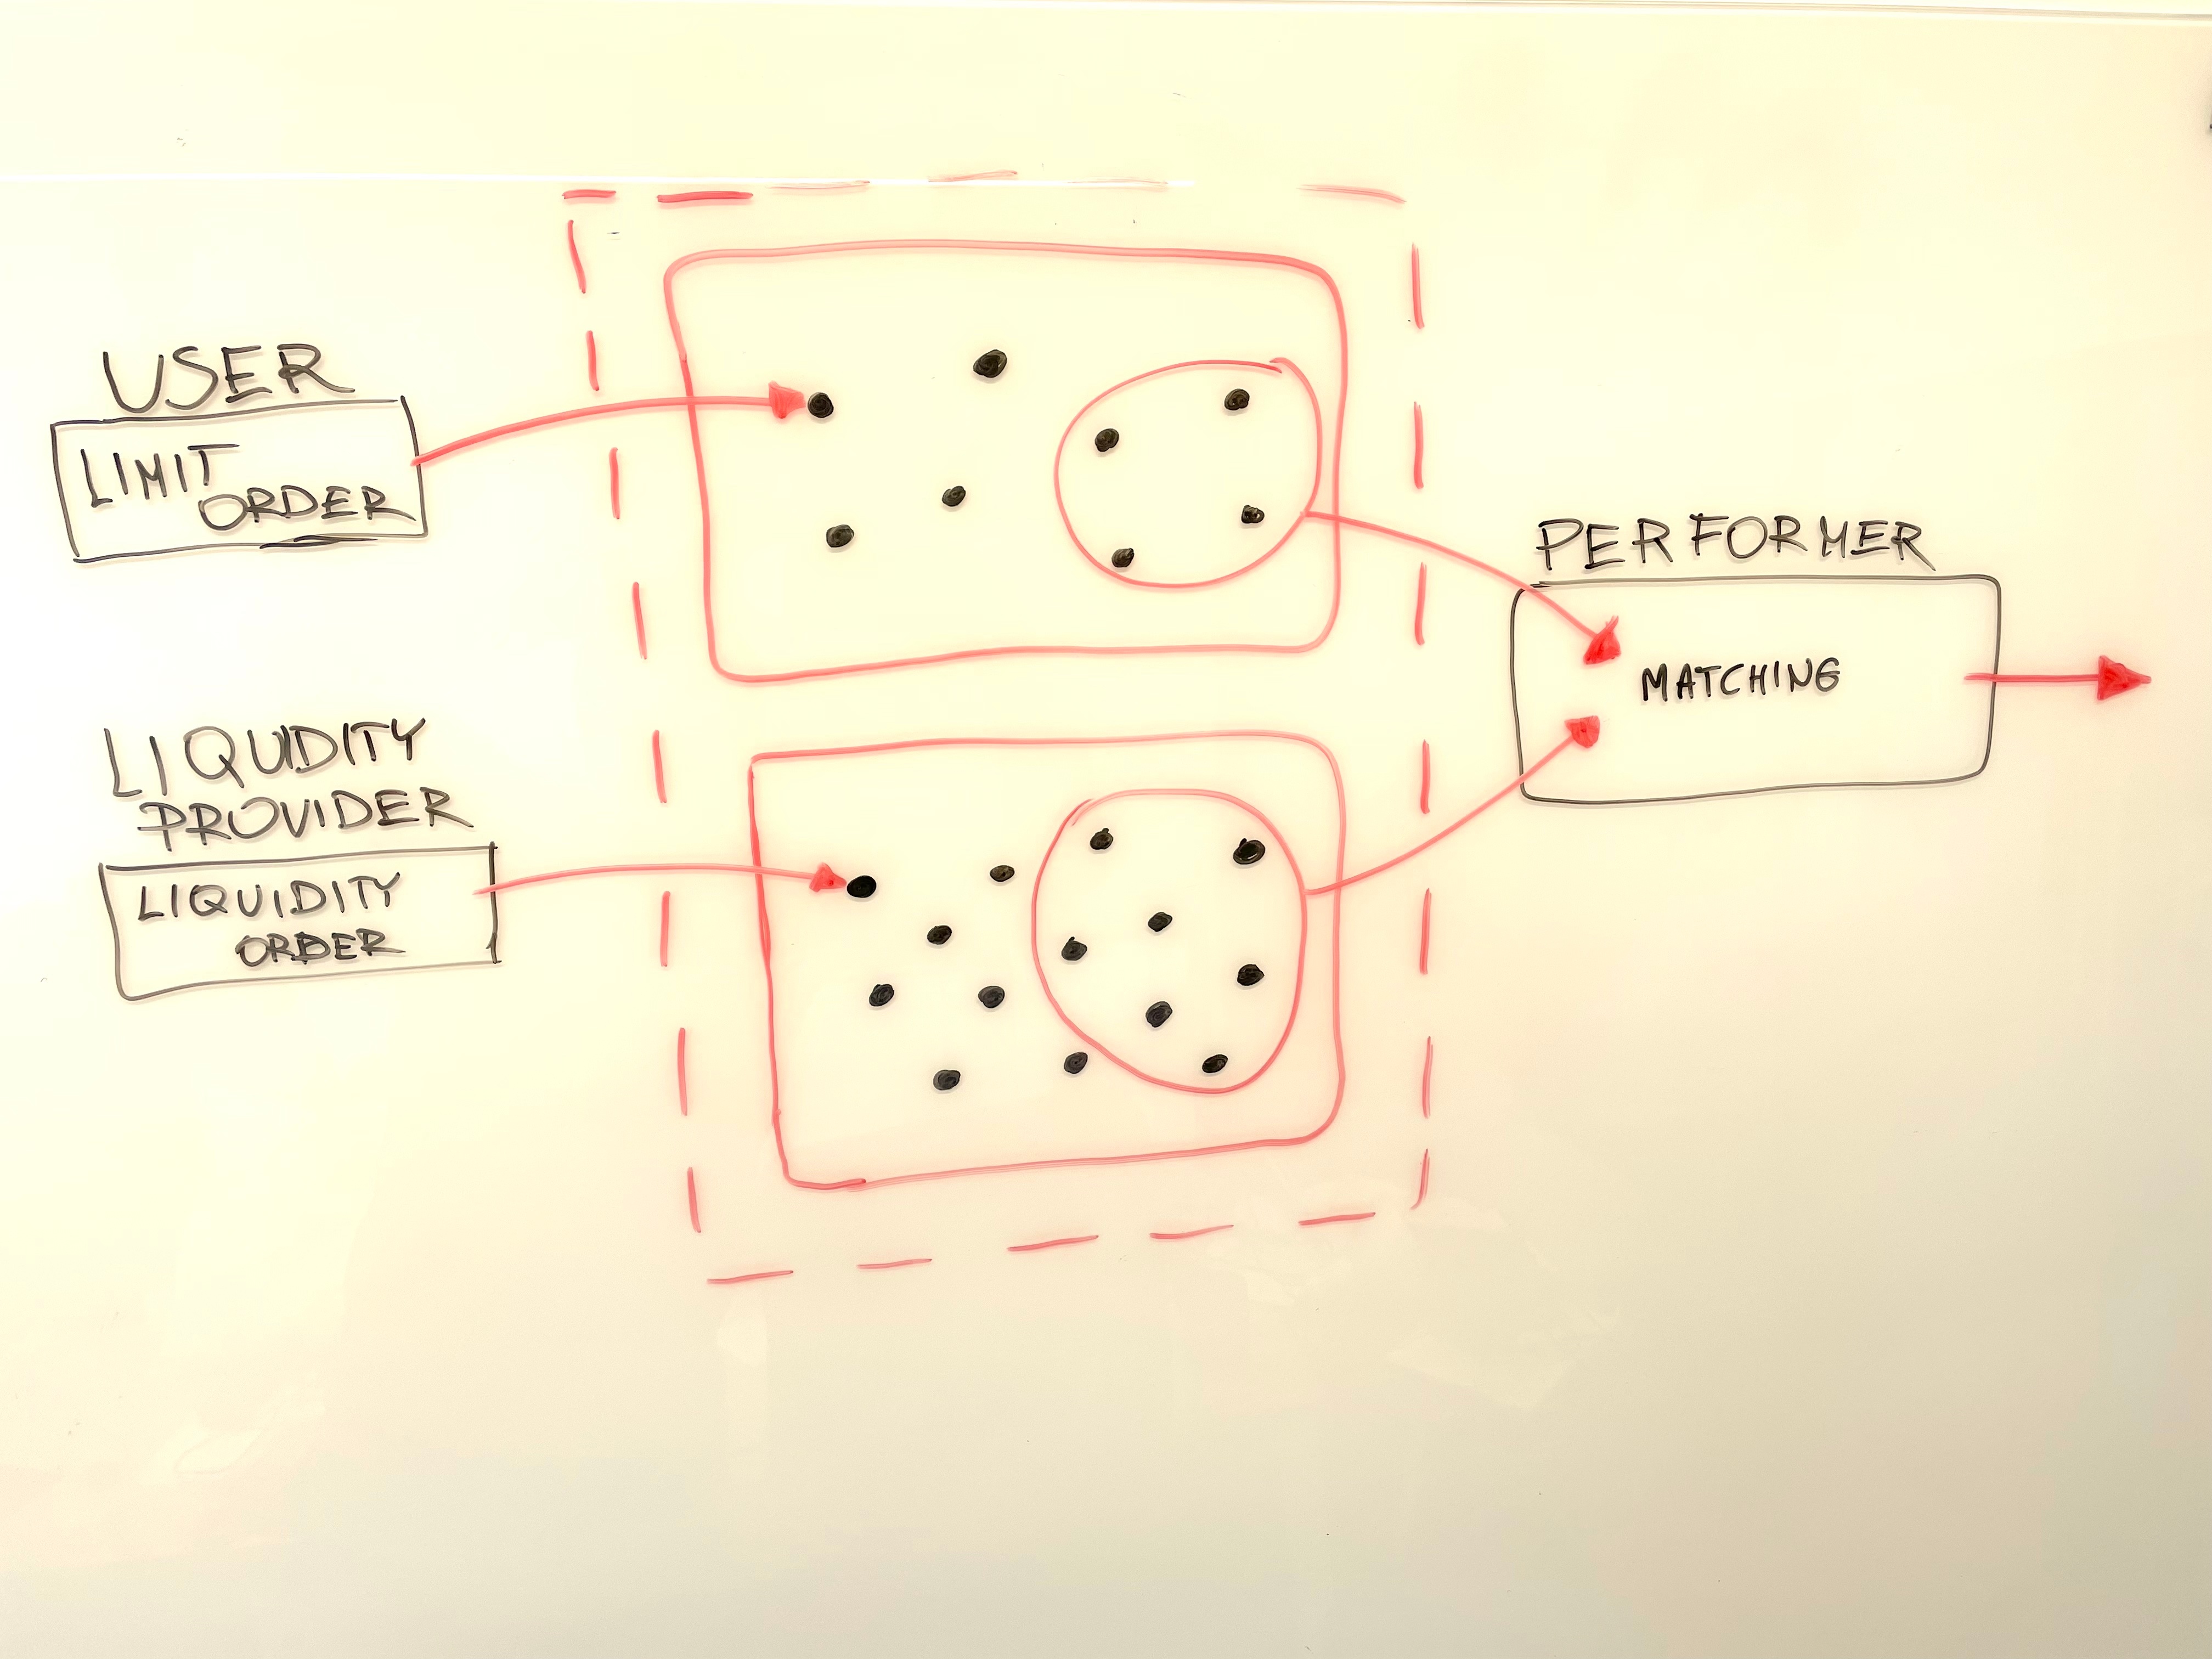 USER
LIMIT
ORDER
LIQUIDITY
PROVIDER
LIQUIDITY
ORDER
PERFORMER
MATCHING